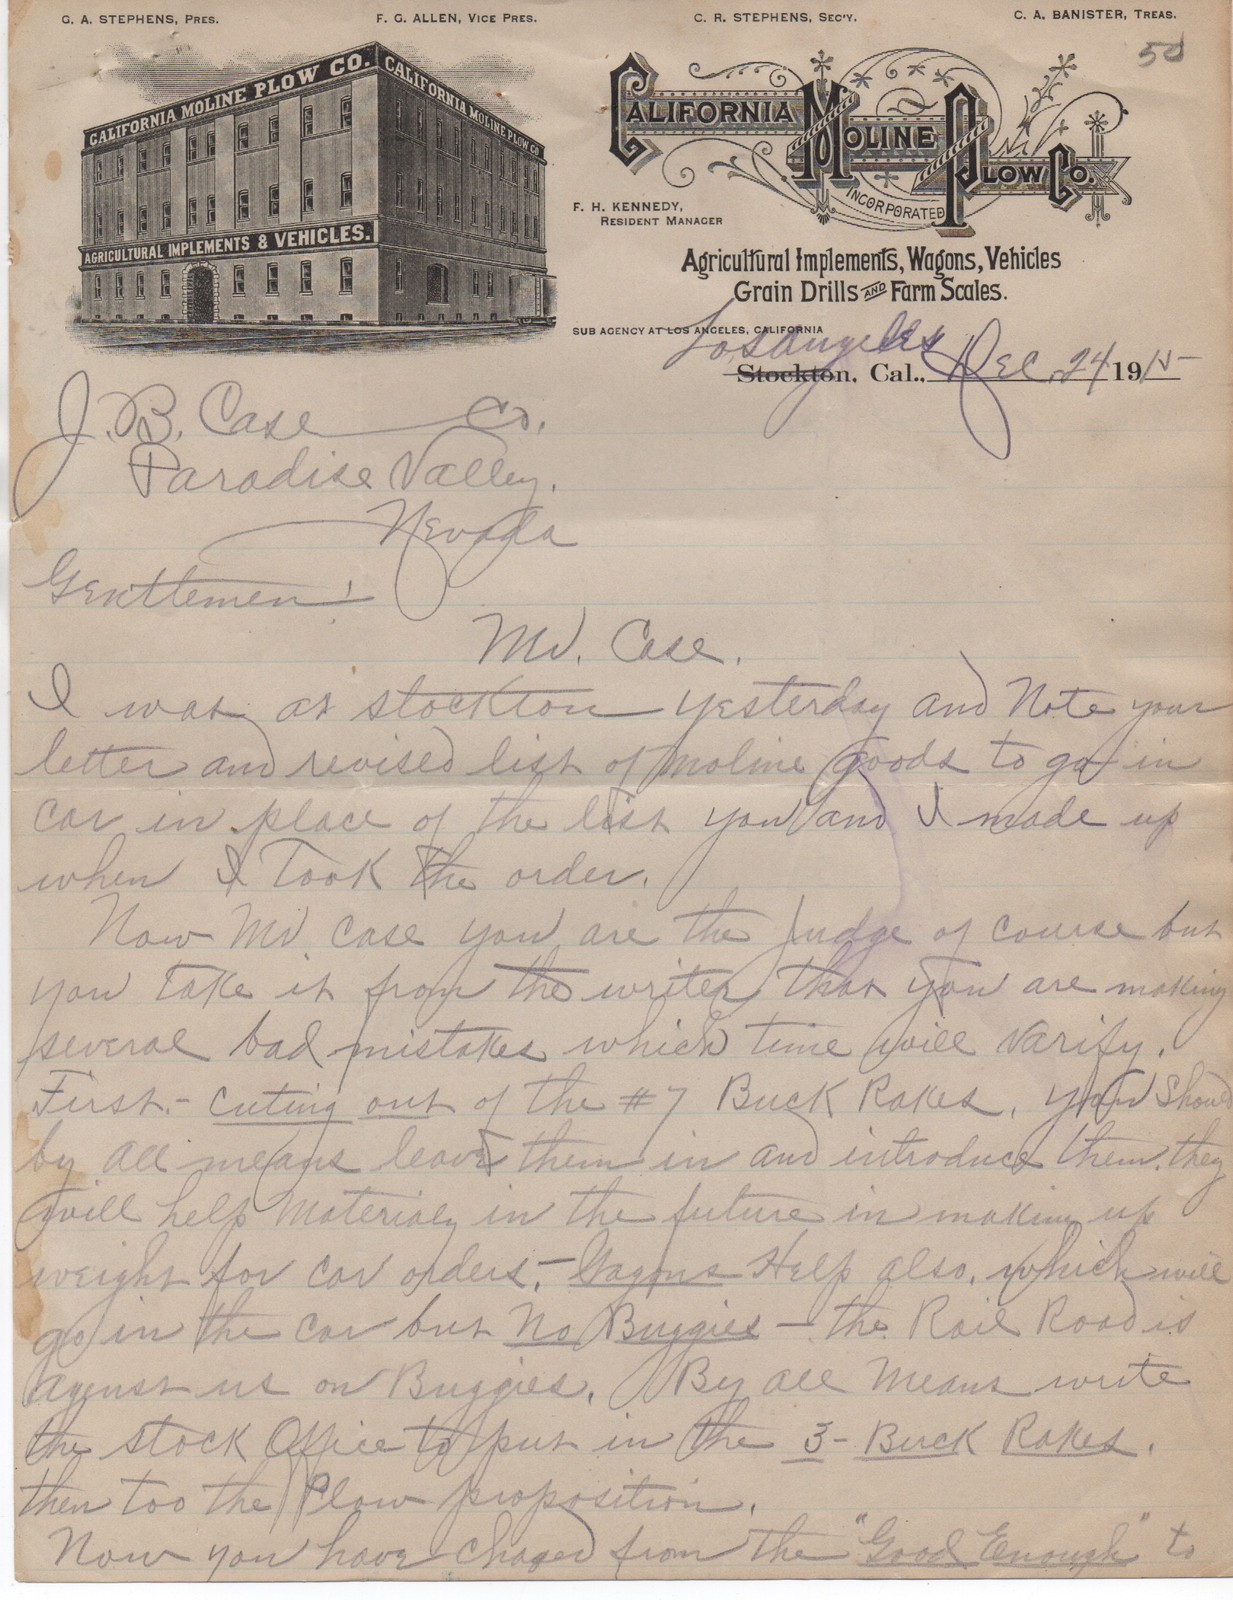 G. A. STEPHENS, PRES. F. G. ALLEN, VICE PRES. C. R. STEPHENS, SEC'Y. C. A. BANISTER, TREAS.
50
CALIFORNIA MOLINE PLOW CO. CALIFORNIA MOLINE PLOW CO
AGRICULTURAL IMPLEMENTS & VEHICLES.
CALIFORNIA MOLINE PLOW CO.
INCORPORATED
F. H. KENNEDY,
RESIDENT MANAGER
Agricultural Implements, Wagons, Vehicles
Grain Drills AND Farm Scales.
SUB AGENCY AT LOS ANGELES, CALIFORNIA
Los Angeles
Stockton, Cal., Dec. 24 1915
J. B. Case Co.
Paradise Valley,
Nevada
Gentlemen!
Mr. Case.
I was at Stockton yesterday and Note your
letter and revised list of Moline goods to go in
car in place of the list you and I made up
when I Took the order.
Now Mr Case you are the Judge of course but
you take it from the writer that you are making
several bad mistakes which time will varify.
First.- cuting out of the #7 Buck Rakes, you Should
by all means leave them in and introduce them, they
will help Materialy in the future in making up
weight for car orders,- Wagons Help also, which will
go in the car but No Buggies - the Rail Road is
against us on Buggies. By all Means write
the Stock Office to put in the 3- Buck Rakes,
then too the Plow proposition.
Now you have chaged from the "Good Enough" to